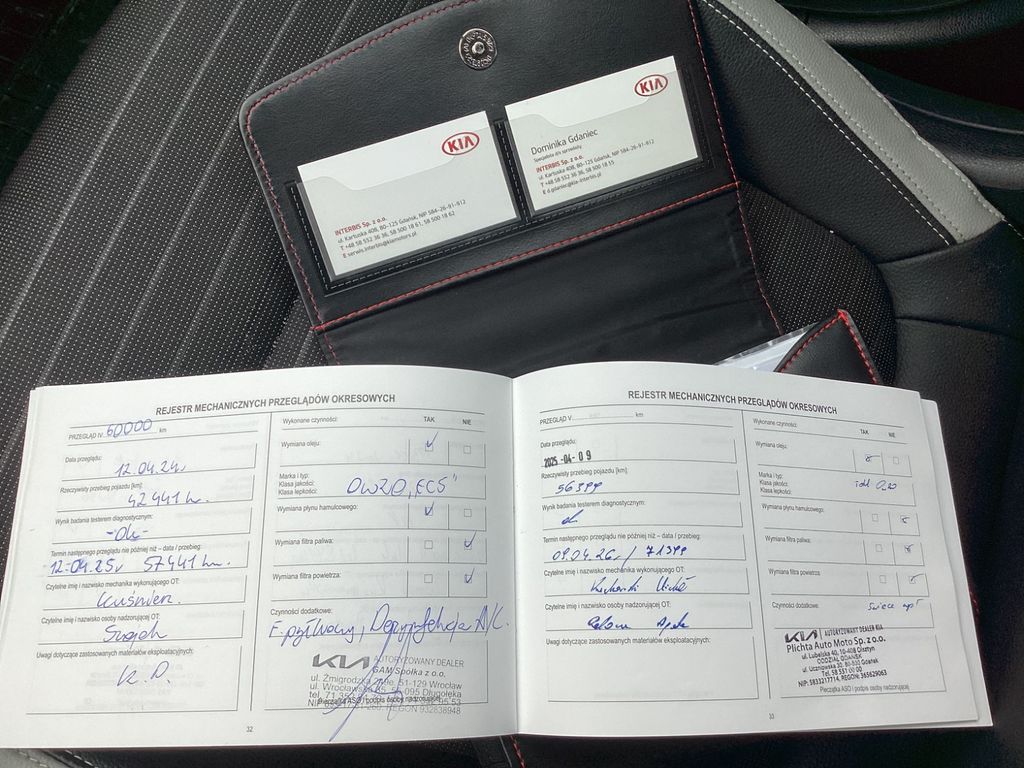 KIA
INTERBIS Sp. z o.o.
ul. Kartuska 408, 80-125 Gdańsk, NIP 584-26-91-912
T +48 58 552 36 36, 58 500 18 61, 58 500 18 62
E serwis.interbis@kiamotors.pl
KIA
Dominika Gdaniec
Specjalista d/s sprzedaży
INTERBIS Sp. z o.o.
ul. Kartuska 408, 80-125 Gdańsk, NIP 584-26-91-912
T +48 58 552 36 36, 58 500 18 55
E d.gdaniec@kia-interbis.pl
REJESTR MECHANICZNYCH PRZEGLĄDÓW OKRESOWYCH
PRZEGLĄD IV 60000 km
Data przeglądu:
12.04.24r.
Rzeczywisty przebieg pojazdu [km]:
42441 km.
Wynik badania testerem diagnostycznym:
-OK-
Termin następnego przeglądu nie później niż – data / przebieg:
12.04.25r 57441 km.
Czytelne imię i nazwisko mechanika wykonującego OT:
Kuśnierz.
Czytelne imię i nazwisko osoby nadzorującej OT:
Uwagi dotyczące zastosowanych materiałów eksploatacyjnych:
K.P.
Wykonane czynności: TAK NIE
Wymiana oleju:
Marka i typ:
Klasa jakości:
Klasa lepkości:
0W20 „EC5”
Wymiana płynu hamulcowego:
Wymiana filtra paliwa:
Wymiana filtra powietrza:
Czynności dodatkowe:
F. pyłkowy, A/C.
KIA AUTORYZOWANY DEALER
GAM Spółka z o.o.
ul. Żmigrodzka 51-129 Wrocław
ul. Wrocławska 095 Długołęka
Pieczątka ASO / podpis osoby nadzorującej
REGON 932838948
32
REJESTR MECHANICZNYCH PRZEGLĄDÓW OKRESOWYCH
PRZEGLĄD V km
Data przeglądu:
2025 -04- 09
Rzeczywisty przebieg pojazdu [km]:
56399
Wynik badania testerem diagnostycznym:
Termin następnego przeglądu nie później niż – data / przebieg:
09.04.26r / 71399
Czytelne imię i nazwisko mechanika wykonującego OT:
Czytelne imię i nazwisko osoby nadzorującej OT:
Uwagi dotyczące zastosowanych materiałów eksploatacyjnych:
Wykonane czynności: TAK NIE
Wymiana oleju:
Marka i typ:
Klasa jakości:
Klasa lepkości:
0,20
Wymiana płynu hamulcowego:
Wymiana filtra paliwa:
Wymiana filtra powietrza:
Czynności dodatkowe:
KIA AUTORYZOWANY DEALER KIA
Plichta Auto Moto Sp. z o.o.
ul. Lubelska 40, 10-408 Olsztyn
ODDZIAŁ GDAŃSK
ul. Lucznowska 30, 80-500 Gdańsk
Tel. 58 551 00 00
NIP: 5833217714, REGON: 365629063
Pieczątka ASO / podpis osoby nadzorującej
33